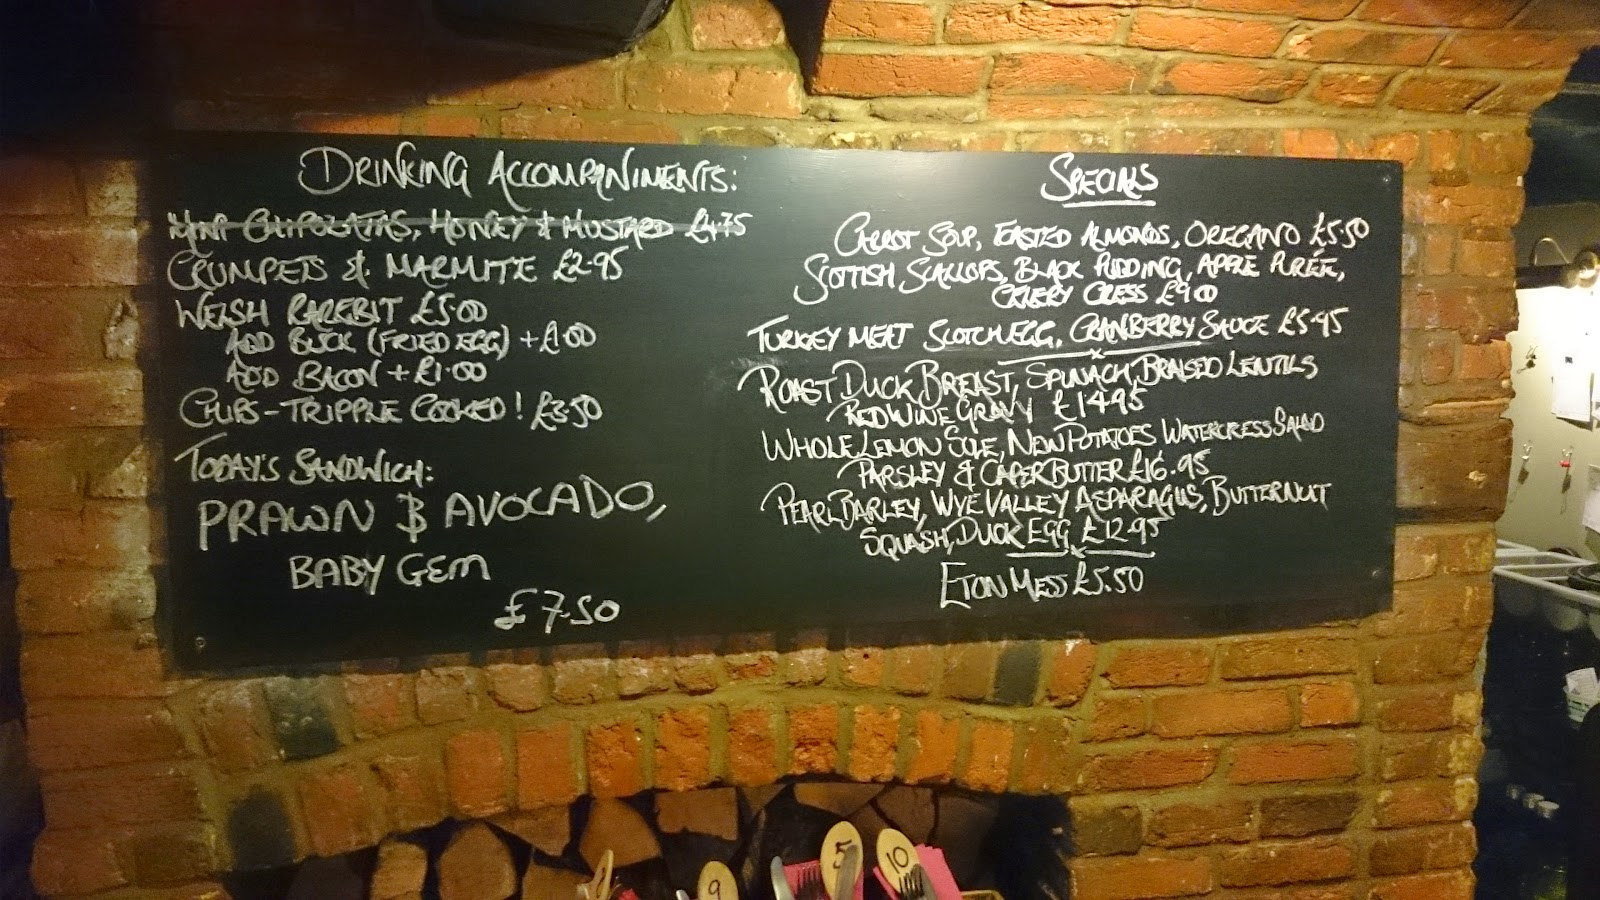 DRINKING ACCOMPANIMENTS:
MINI CHIPOLATAS, HONEY & MUSTARD £4.75
CRUMPETS & MARMITE £2.95
WELSH RAREBIT £5.00
ADD BUCK (FRIED EGG) + £1.00
ADD BACON + £1.00
CHIPS - TRIPPLE COOKED! £3.50
TODAY'S SANDWICH:
PRAWN & AVOCADO,
BABY GEM
£7.50
SPECIALS
CARROT SOUP, TOASTED ALMONDS, OREGANO £5.50
SCOTTISH SCALLOPS, BLACK PUDDING, APPLE PURÉE,
CELERY CRESS £9.00
TURKEY MEAT SCOTCH EGG, CRANBERRY SAUCE £5.95
ROAST DUCK BREAST, SPINACH, BRAISED LENTILS
RED WINE GRAVY £14.95
WHOLE LEMON SOLE, NEW POTATOES WATERCRESS SALAD
PARSLEY & CAPER BUTTER £16.95
PEARL BARLEY, WYE VALLEY ASPARAGUS, BUTTERNUT
SQUASH, DUCK EGG £12.95
ETON MESS £5.50
9
5
10